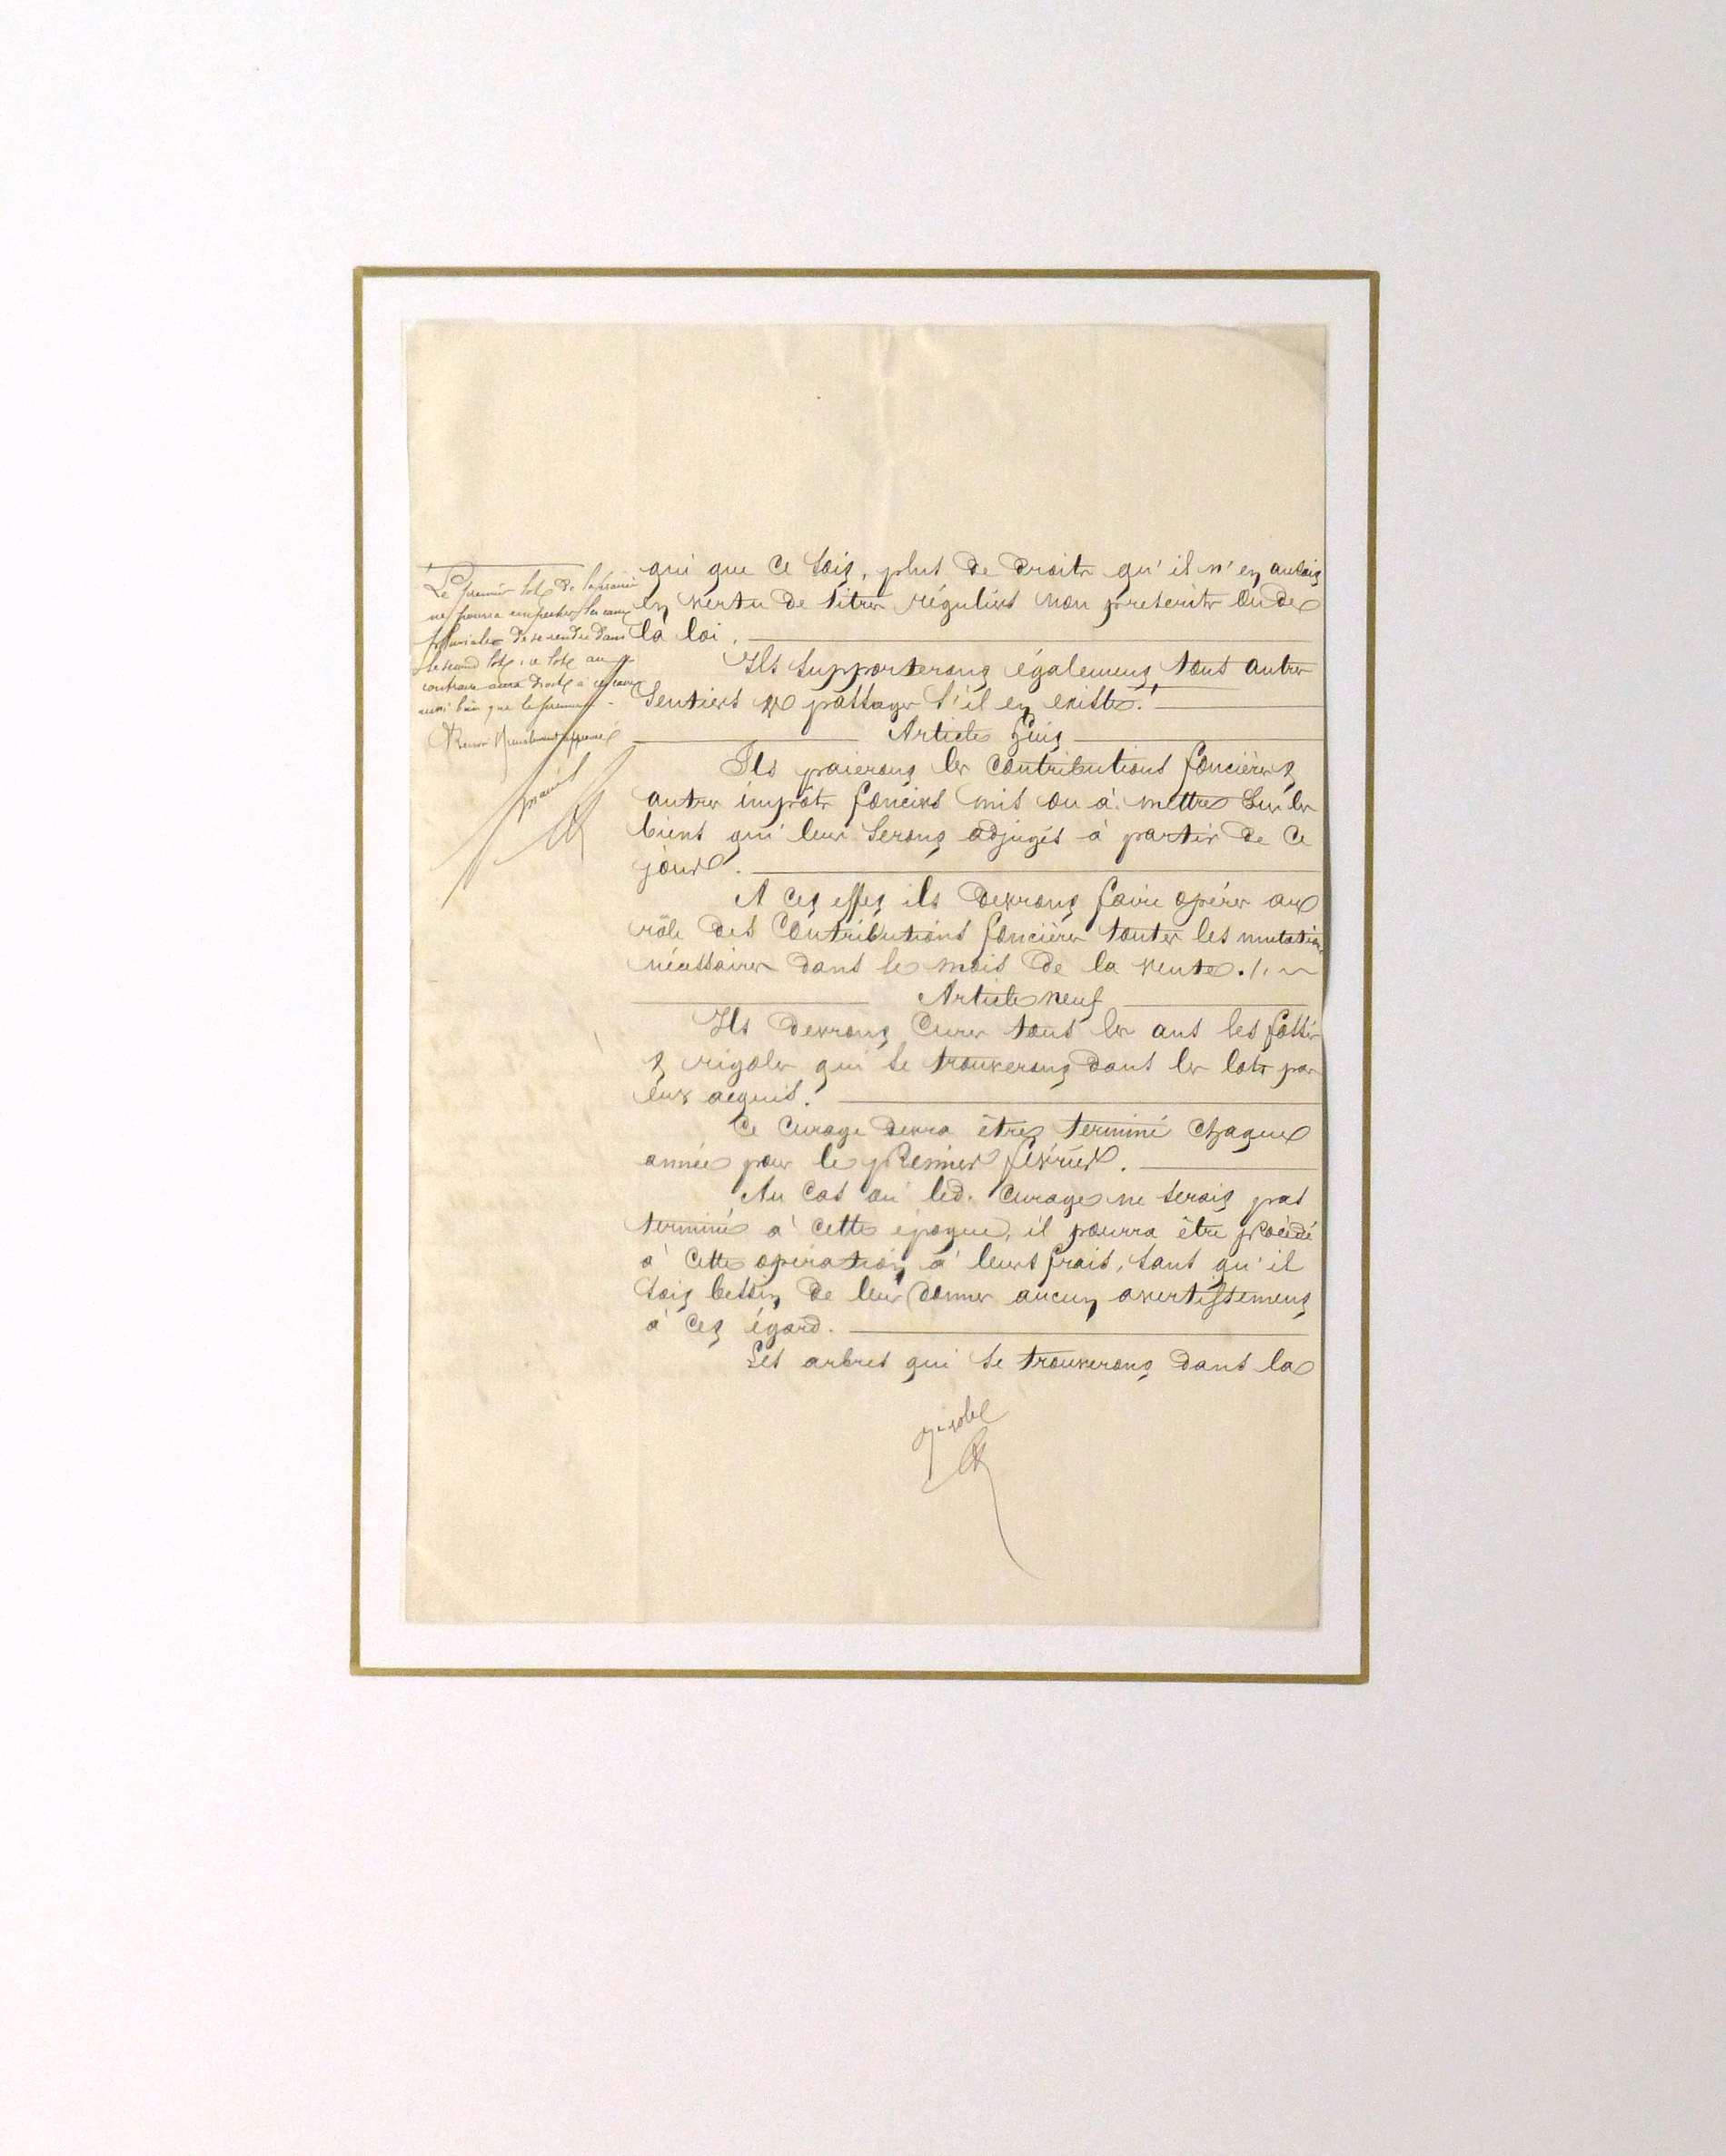 Le premier lot de la prairie
ne pourra empêcher les eaux
pluviales de se rendre dans
le second lot, ce lot au
contraire aura droit à ces eaux
aussi bien que le premier.
Renvoi approuvé
qui que ce soit, plus de droits qu'il n'en aurait
en vertu de titres réguliers non prescrits ou de
la loi.
Ils supporteront également tous autres
sentiers et passages s'il en existe.
Article huit
Ils paieront les contributions foncières et
autres impôts fonciers mis ou à mettre sur les
biens qui leur seront adjugés à partir de ce
jour.
A cet effet ils devront faire opérer au
rôle des contributions foncières toutes les mutations
nécessaires dans le mois de la vente.
Article neuf
Ils devront curer tous les ans les fossés
et rigoles qui se trouveront dans les lots par
eux acquis.
Ce curage devra être terminé chaque
année pour le premier février.
Au cas où led. curage ne serait pas
terminé à cette époque, il pourra être procédé
à cette opération à leurs frais, sans qu'il
soit besoin de leur donner aucun avertissement
à cet égard.
Les arbres qui se trouveront dans la